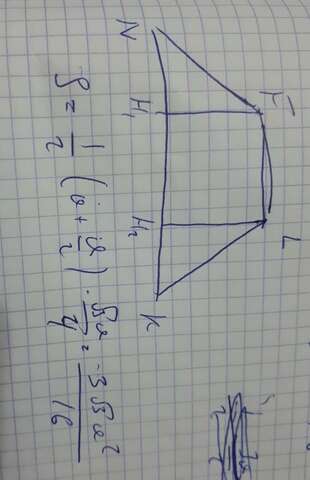 N
H₁
H₂
K
F
L
S = 1/2 (a + a/2) · √3a/4 = 3√3a²/16